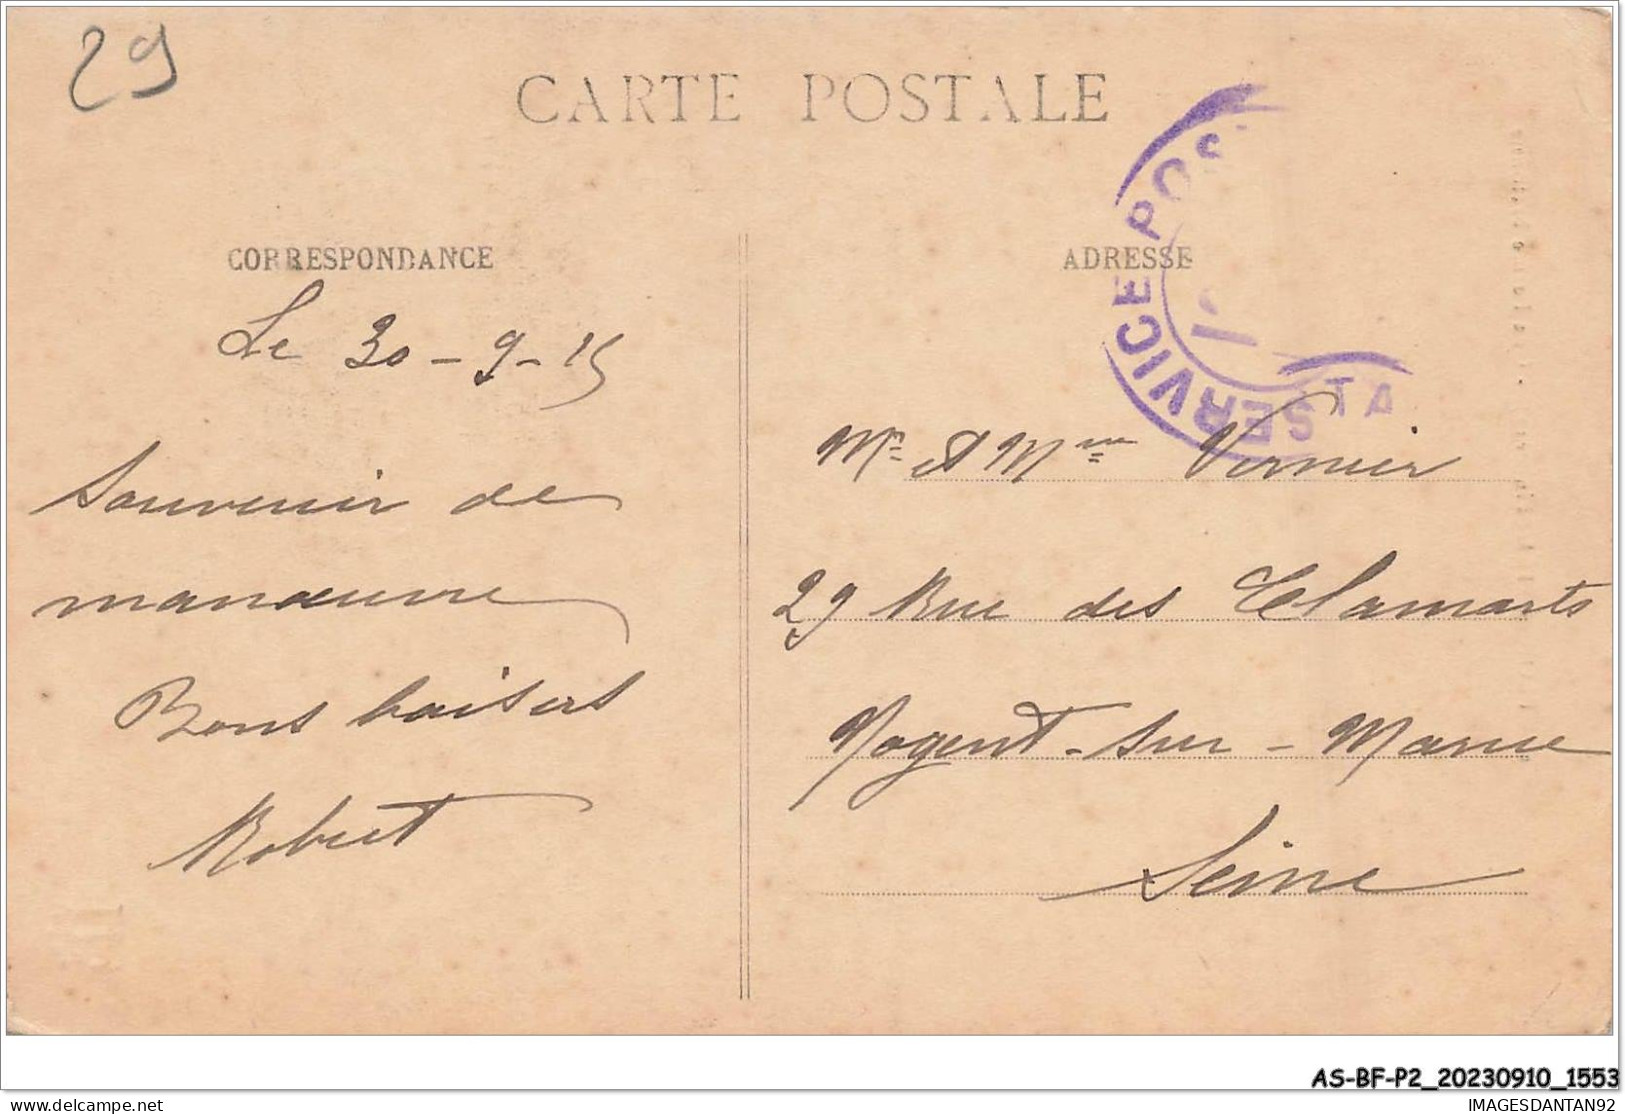 29
CARTE POSTALE
SERVICE POS
TA
CORRESPONDANCE
Le 30-9-15
Souvenir de
manœuvre
Bons baisers
Robert
ADRESSE
Mr et Mme Vernier
29 Rue des Clamarts
Nogent-sur-Marne
Seine
AS-BF-P2_20230910_1553
delcampe.net
IMAGESDANTAN92